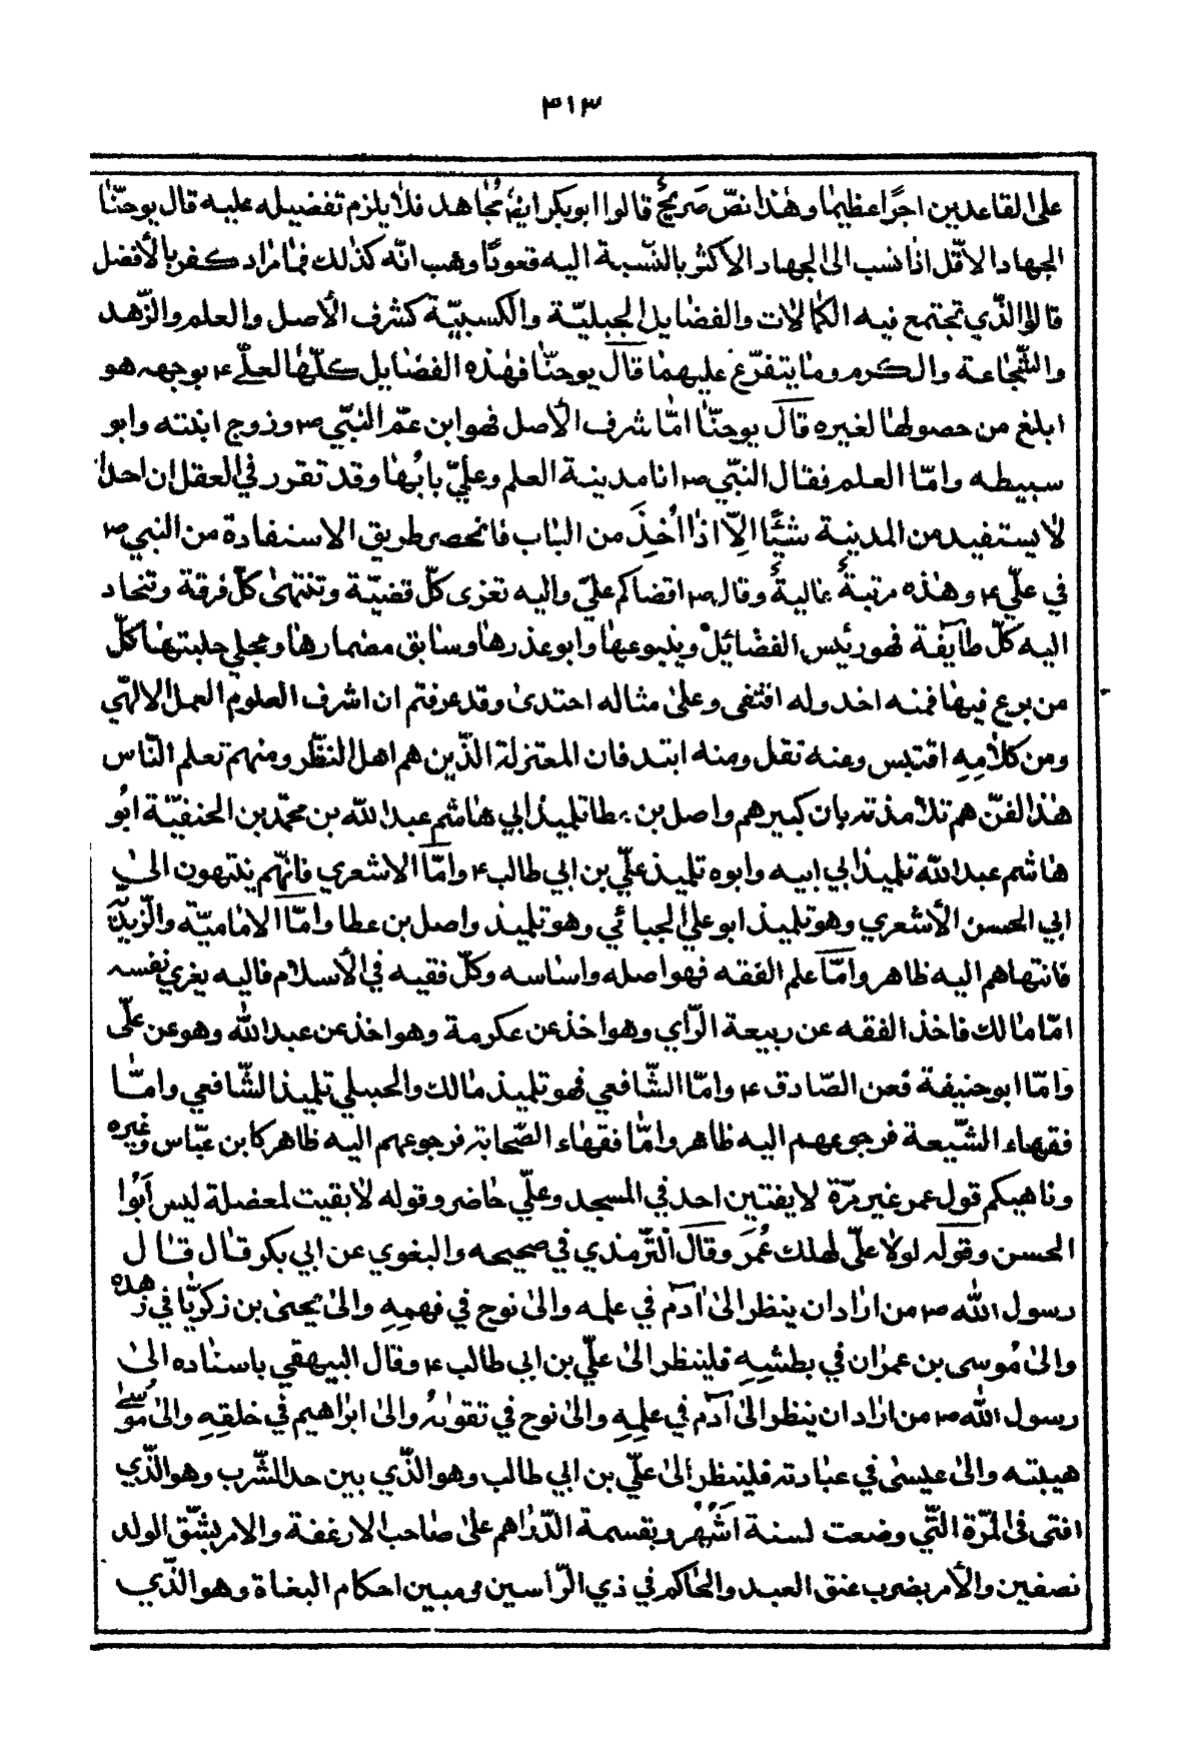 ٣١٣
على القاعدين اجرًا عظيمًا وهٰذا نصّ صَريحٌ قالوا ابوبكر ايضًا مُجٰاهد فلا يلزم تفضيله عليه قال يوحنّا
الجهاد الاقل اذا نسب الى الجهاد الأكثر بالنّسبة اليه قعودًا وهب انّه كذلك فما مراد كفر بالأفضل
قالوا الذّي تجتمع فيه الكمٰالات والفضٰايل الجبليّة والكسبيّة كشرف الأصل والعلم والزّهد
والشّجٰاعة والكرم ومٰا يتفرّع عليهمٰا قال يوحنّا فهٰذه الفضٰايل كلّهٰا لعلّي ع بوجهه هو
ابلغ من حصولهٰا لغيره قال يوحنّا امّا شرف الأصل فهو ابن عمّ النبّي ص وزوج ابنته وابو
سبيطه وامّا العلم فقال النبّي ص انا مدينة العلم وعليّ بابُهٰا وقد تقرر في العقل ان احدًا
لا يستفيد من المدينة شيئًا الّا اذٰا اُخِذَ من البٰاب فانحصر طريق الاستفادة من النبي ص
في علّي ع وهٰذه مرتبةٌ عاليةٌ وقال ص اقضاكم عليّ واليه تعزى كلّ قضيّة وتنتهى كلّ فرقة وتنحاد
اليه كلّ طايفة فهو رئيس الفضٰائل وينبوعهٰا وابو عذرهٰا وسٰابق مضمارهٰا ومجلي حلبتهٰا كلّ
من برع فيهٰا فمنه اخد وله اقتفى وعلىٰ مثاله احتدىٰ وقد عرفتم ان اشرف العلوم العمل الالهّي
ومن كلٰامِهِ اقتبس وعنه نقل ومنه ابتد فان المعتزلة الذّين هم اهل النظّر ومنهم تعلم النّاس
هٰذا الفنّ هم تلامذته بان كبيرهم واصل بن عطا تلميذ ابي هٰاشم عبد اللّه بن محمّد بن الحنفيّة ابُو
هٰاشم عبد اللّه تلميذ ابي ابيه وابوه تلميذ علّي بن ابي طالب ع وامّا الاشعري فانّهم ينتهون الىٰ
ابي الحسن الأشعري وهو تلميذ ابو علي الجبائي وهو تلميذ واصل بن عطا وامّا الامٰاميّة والزّيديّة
فانتهاهم اليه ظاهر وامّا علم الفقه فهو اصله واسٰاسه وكلّ فقيه في الأسلٰام فاليه يغري نفسه
امّا مٰالك فاخذ الفقه عن ربيعة الرّاي وهو اخذ عن عكرمة وهو اخذ عن عبد اللّه وهو عن علّى
وامّا ابوحنيفة فعن الصّادق ع وامّا الشّافعي فهو تلميذ مٰالك والحبيلي تلميذ الشّافعي وامّا
فقهاء الشّيعة فرجوعهم اليه ظاهر وامّا فقهٰاء الصّحابة فرجوعهم اليه ظاهر كابن عبّاس وغيره
وناهيكم قول عمر غير مرّة لا يفتين احد في المسجد وعلّي حٰاضر وقوله لا بقيت لمعضلة ليس اَبُوا
الحسن وقوله لولٰا علّي لهلك عُمَر وقال الترّمذي في صحيحه والبغوي عن ابي بكر قال قٰال
رسول اللّه ص من ارٰاد ان ينظر الىٰ آدٰم في علمه والىٰ نوح في فهمِهِ والىٰ يحيىٰ بن زكريّا في زهده
والىٰ مُوسى بن عمرٰان في بطشِهِ فلينظر الىٰ علّي بن ابي طالب ع وقال البيهقي باسنٰاده الىٰ
رسول اللّه ص من ارٰاد ان ينظر الىٰ آدٰم في علِمِهِ والىٰ نوح في تقوٰيهُ والىٰ ابرٰاهيم في خلقِهِ والىٰ مُوسىٰ
هيبته والىٰ عيسىٰ في عبٰادته فلينظر الىٰ علّي بن ابي طالب وهو الذّي بين حد الشّرب وهو الذّي
افتى في المرّة التّي وضعت لسنة اَشْهُر وبقسمة الدّرٰاهم علىٰ صٰاحب الارغفة والامر بشقّ الولد
نصفين والأمر بضرب عنق العبد والحٰاكم في ذي الرّاسين ومبين احكام البغاة وهو الذّي